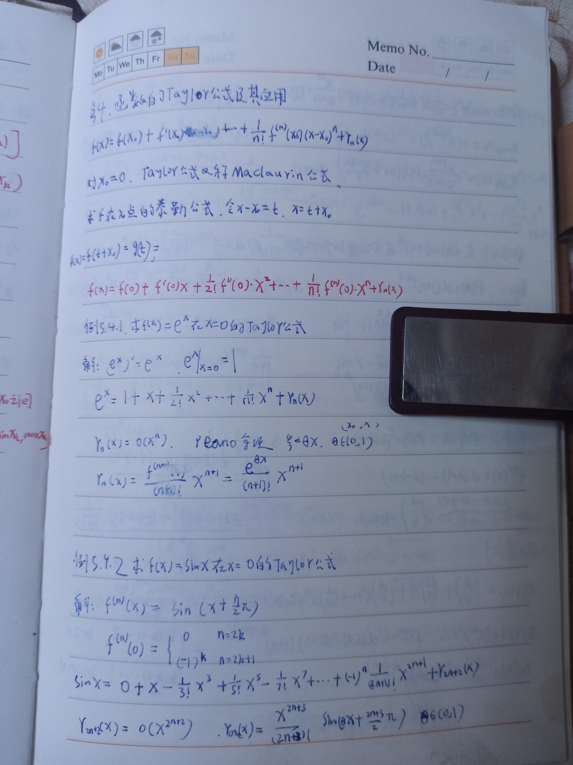 Memo No.
Mo Tu We Th Fr Sa Su
Date / /
§4. 函数的Taylor公式及其应用
f(x)=f(x₀)+f'(x₀)(x-x₀)+…+1/n! f⁽ⁿ⁾(x₀)(x-x₀)ⁿ+rₙ(x)
对x₀=0. Taylor公式又称Maclaurin公式.
求f在x₀点的泰勒公式. 令x-x₀=t. x=t+x₀
f(x)=f(t+x₀)=g(t);
f(x)=f(0)+f'(0)x+1/2! f''(0)·x²+…+1/n! f⁽ⁿ⁾(0)·xⁿ+rₙ(x)
例5.4.1 求f(x)=eˣ在x=0的Taylor公式
解: (eˣ)'=eˣ. eˣ|x=0=1
eˣ=1+x+1/2! x²+…+1/n! xⁿ+rₙ(x)
rₙ(x)=o(xⁿ). peano余项 ξ=θx. θ∈(0,1)
rₙ(x)= xⁿ⁺¹=e^{θx}/(n+1)! xⁿ⁺¹
例5.4.2 求f(x)=sinx在x=0的Taylor公式
解: f⁽ⁿ⁾(x)=sin(x+n/2 π)
f⁽ⁿ⁾(0)={ 0 n=2k
(-1)ᵏ n=2k+1
sinx=0+x-1/3! x³+1/5! x⁵-1/7! x⁷+…+(-1)ⁿ 1/(2n+1)! x²ⁿ⁺¹+r₂ₙ₊₂(x)
r₂ₙ₊₂(x)=o(x²ⁿ⁺²) . r₂ₙ₊₂(x)=x²ⁿ⁺³/(2n+3)! sin(θx+(2n+3)/2 π) θ∈(0,1)